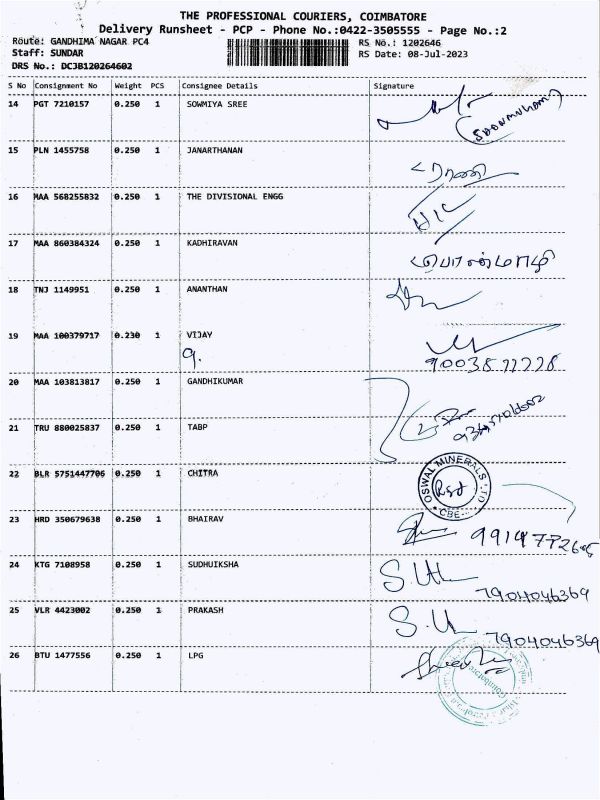 THE PROFESSIONAL COURIERS, COIMBATORE
Delivery Runsheet - PCP - Phone No.:0422-3505555 - Page No.:2
Route: GANDHIMA NAGAR PC4 RS No.: 1202646
Staff: SUNDAR RS Date: 08-Jul-2023
DRS No.: DCJB120264602
S No Consignment No Weight PCS Consignee Details Signature
14 PGT 7210157 0.250 1 SOWMIYA SREE
15 PLN 1455758 0.250 1 JANARTHANAN
16 MAA 568255832 0.250 1 THE DIVISIONAL ENGG
17 MAA 860384324 0.250 1 KADHIRAVAN
18 TNJ 1149951 0.250 1 ANANTHAN
19 MAA 100379717 0.230 1 VIJAY
9003877778
20 MAA 103813817 0.250 1 GANDHIKUMAR
21 TRU 880025837 0.250 1 TABP
22 BLR 5751447706 0.250 1 CHITRA OSWAL MINERALS LTD CBE
23 HRD 350679638 0.250 1 BHAIRAV
24 KTG 7108958 0.250 1 SUDHUIKSHA
7904046369
25 VLR 4423002 0.250 1 PRAKASH
7904046369
26 BTU 1477556 0.250 1 LPG